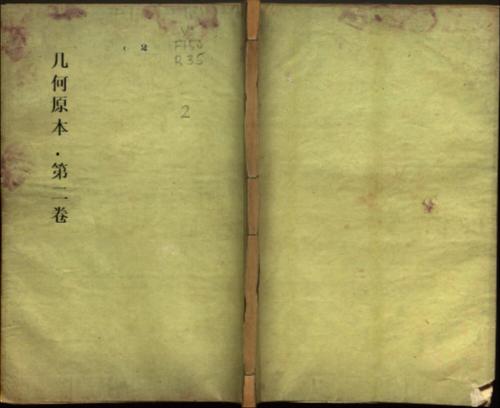 几何原本·第二卷
2
V
F150
R35
2